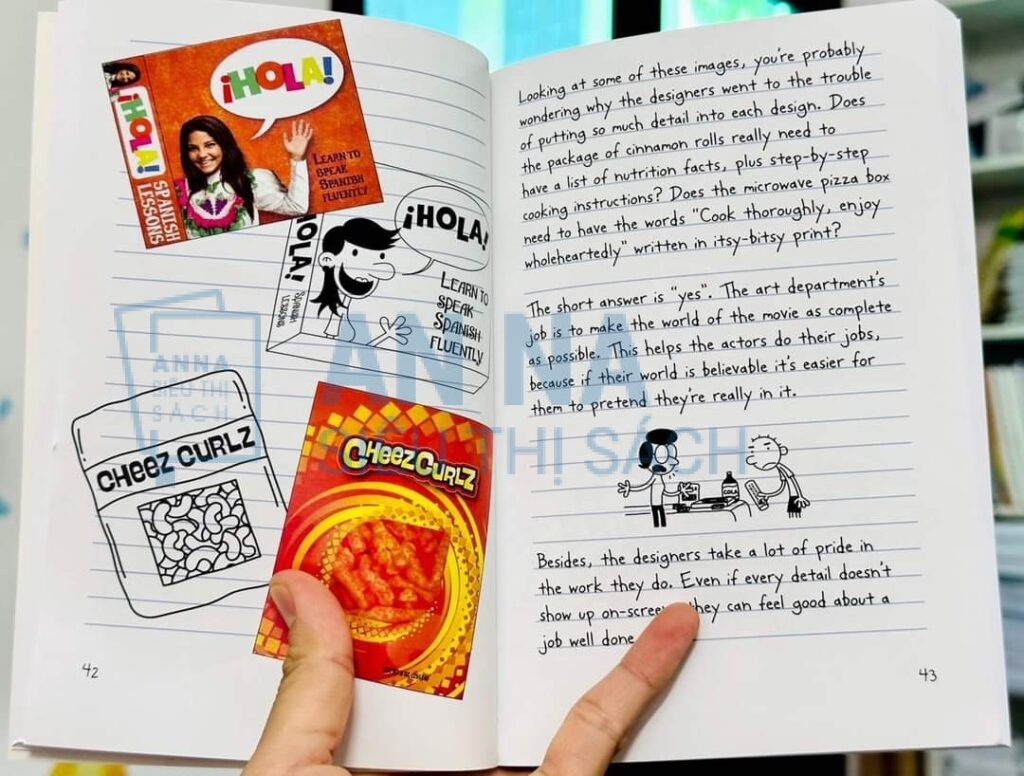 ¡HOLA!
¡HOLA!
SPANISH
LESSONS
LEARN TO
SPEAK
SPANISH
FLUENTLY
¡HOLA!
HOLA!
SPANISH
LESSONS
LEARN TO
SPEAK
SPANISH
FLUENTLY
CHEEZ CURLZ
CHEEZ CURLZ
42
Looking at some of these images, you're probably
wondering why the designers went to the trouble
of putting so much detail into each design. Does
the package of cinnamon rolls really need to
have a list of nutrition facts, plus step-by-step
cooking instructions? Does the microwave pizza box
need to have the words "Cook thoroughly, enjoy
wholeheartedly" written in itsy-bitsy print?
The short answer is "yes". The art department's
job is to make the world of the movie as complete
as possible. This helps the actors do their jobs,
because if their world is believable it's easier for
them to pretend they're really in it.
Besides, the designers take a lot of pride in
the work they do. Even if every detail doesn't
show up on-screen, they can feel good about a
job well done
43
ANNA
SIÊU THỊ
SÁCH
AN NA
SIÊU THỊ SÁCH